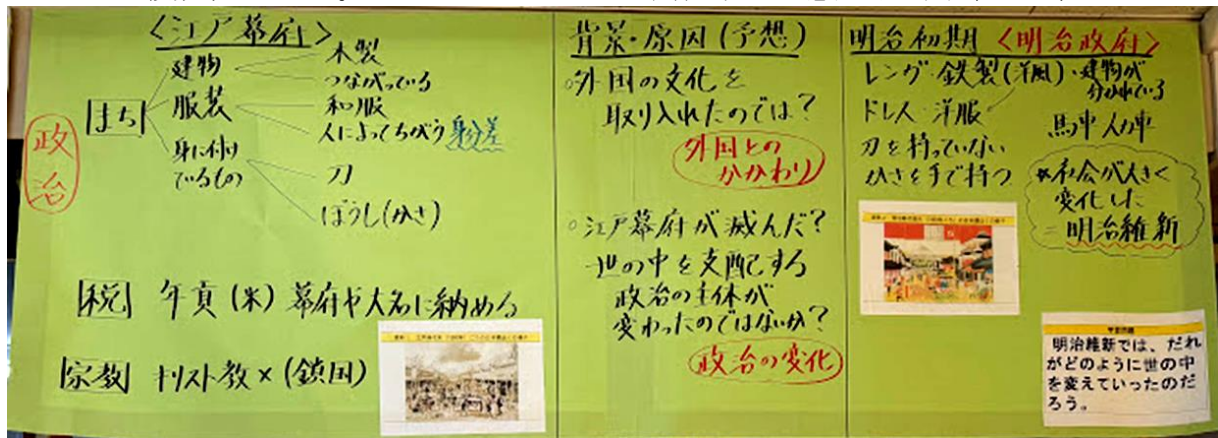 〈江戸幕府〉
政治
まち
建物
木製
つながっている
服装
和服
人によってちがう 身分差
身に付け
ているもの
刀
ぼうし(かさ)
税 年貢(米) 幕府や大名に納める
宗教 キリスト教×(鎖国)
背景・原因(予想)
○外国の文化を
取り入れたのでは?
外国との
かかわり
○江戸幕府が滅んだ?
世の中を支配する
政治の主体が
変わったのではないか?
政治の変化
明治初期〈明治政府〉
レンガ・鉄製(洋風)・建物が
分かれている
ドレス・洋服
馬車 人力車
刀を持っていない
かさを手で持つ
*社会が大きく
変化した
=明治維新
学習問題
明治維新では、だれ
がどのように世の中
を変えていったのだ
ろう。